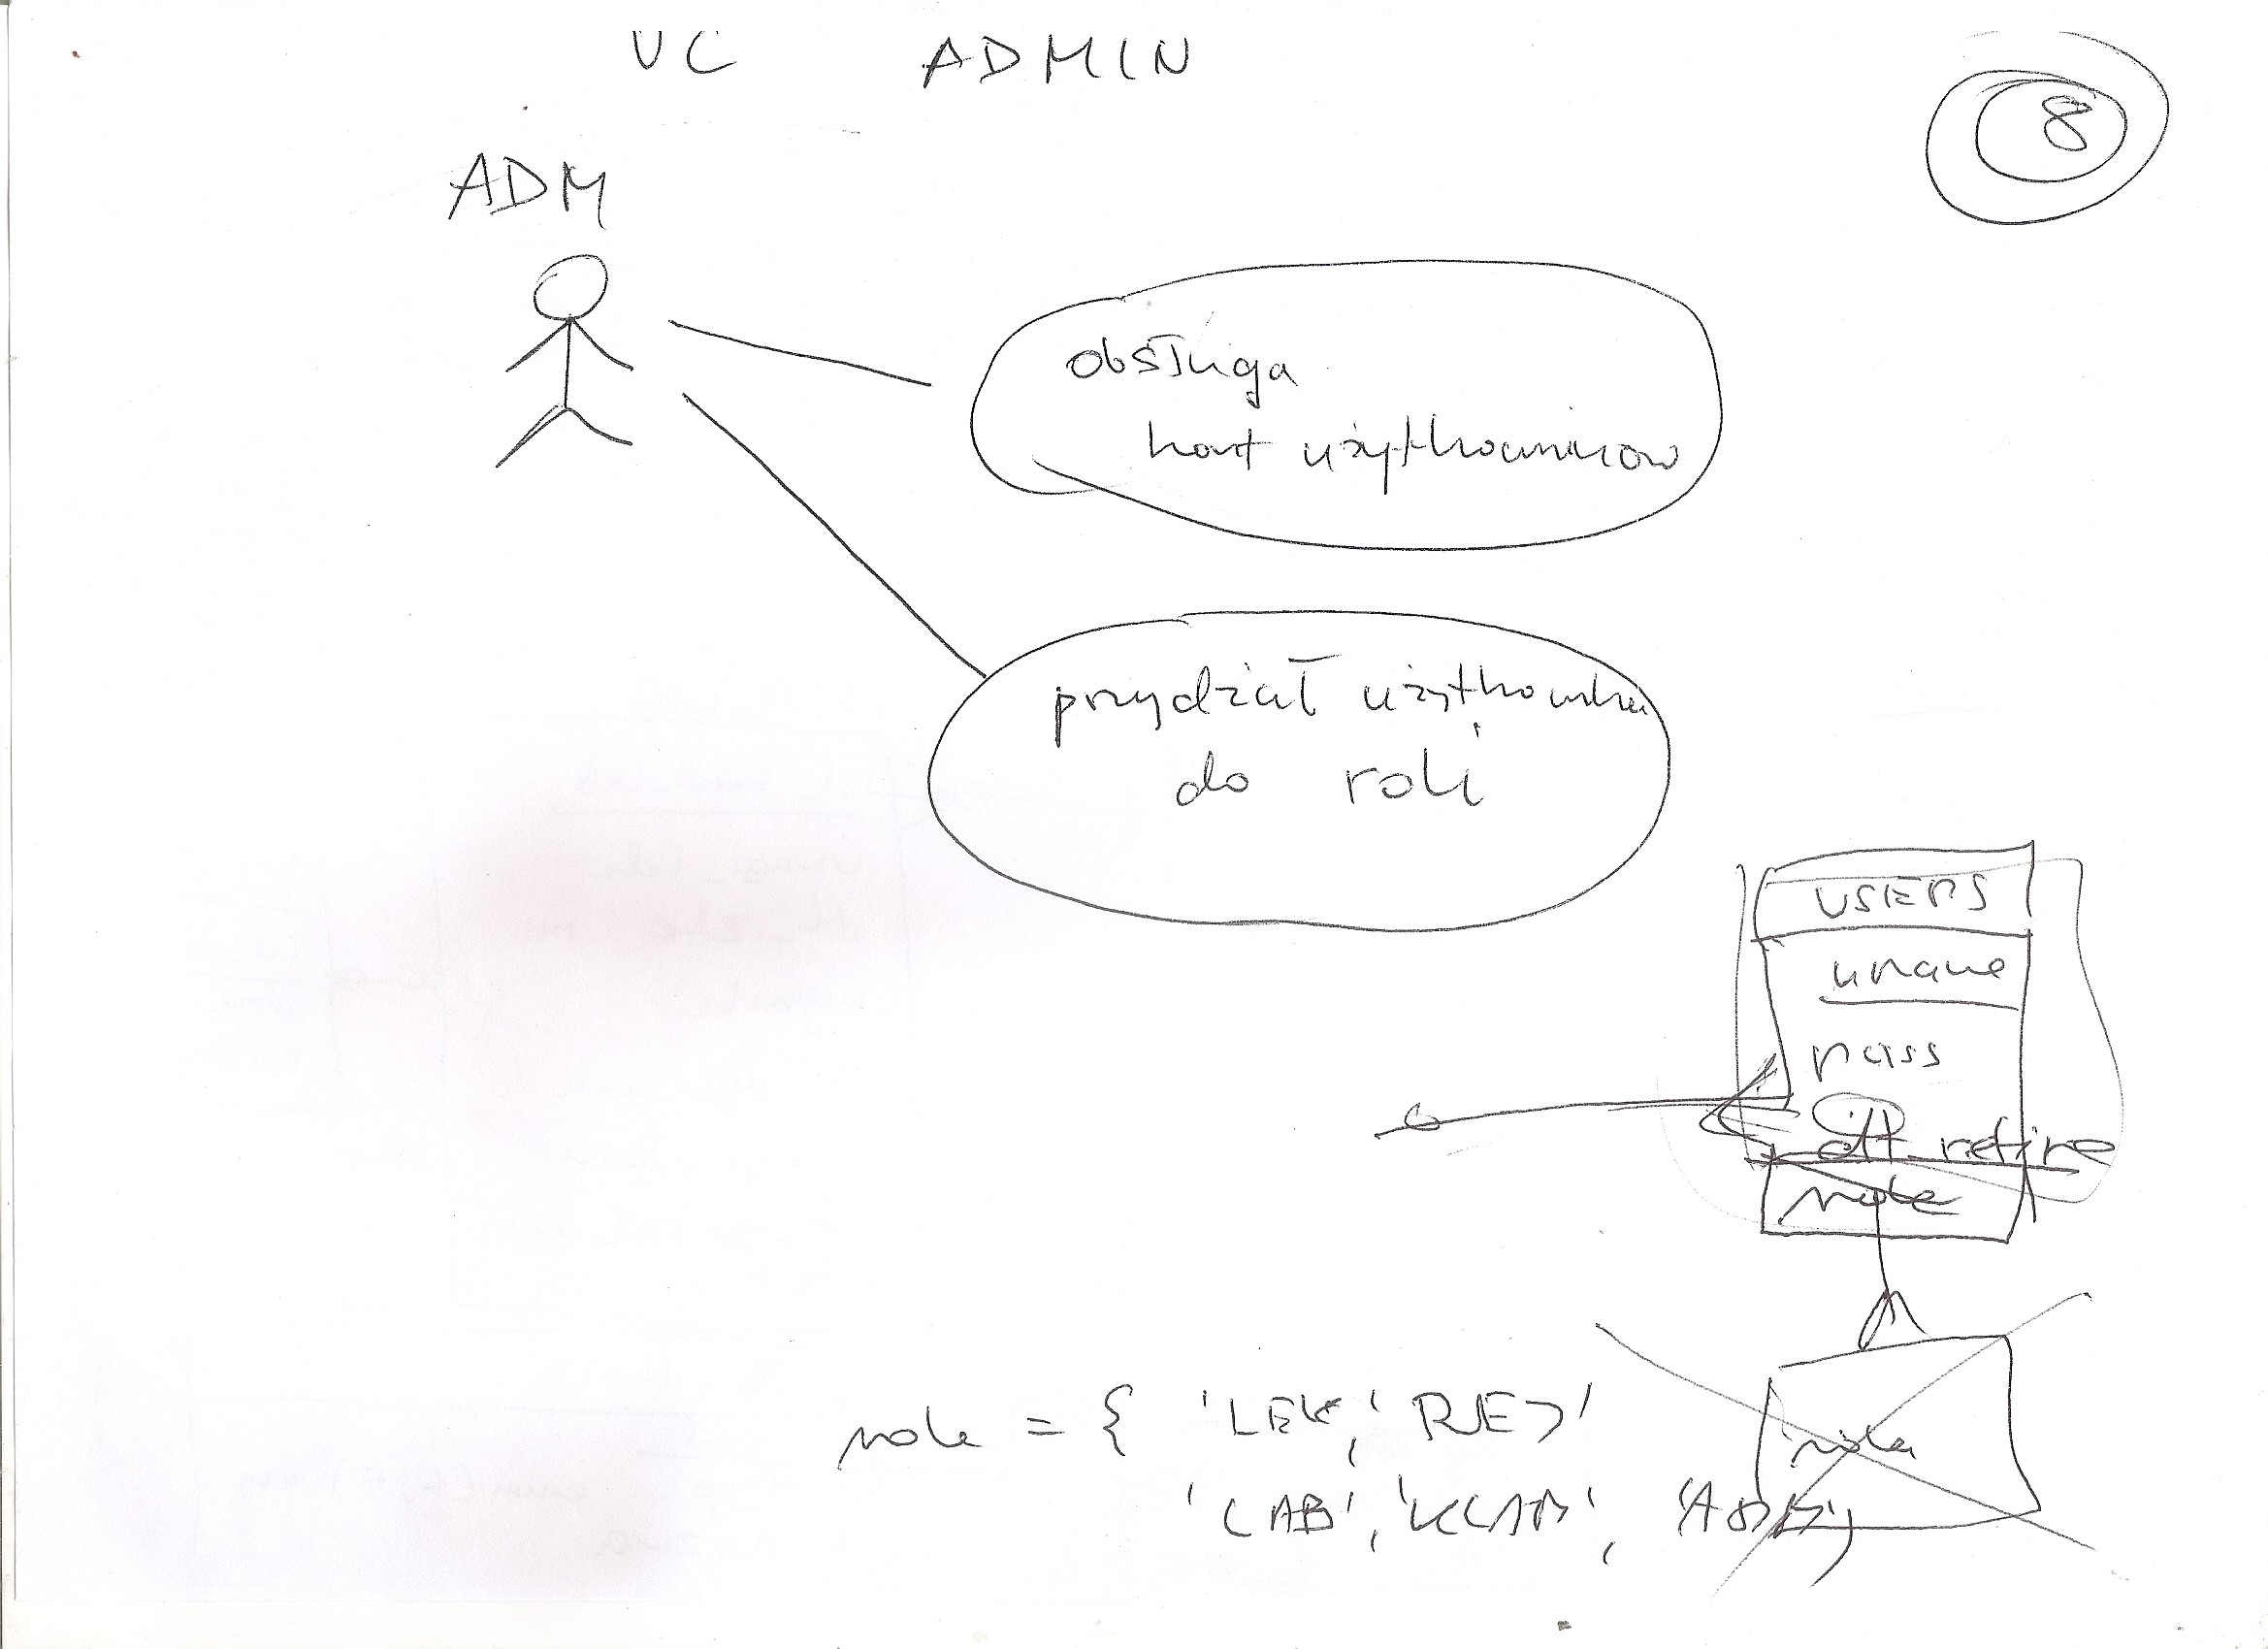 UC ADMIN
8
ADM
obsługa
kont użytkowników
przydział użytkownika
do roli
USERS
uname
pass
dt_retire
role
role = { 'LEK', 'REJ'
rola
'LAB', 'KLAB', 'ADM'}